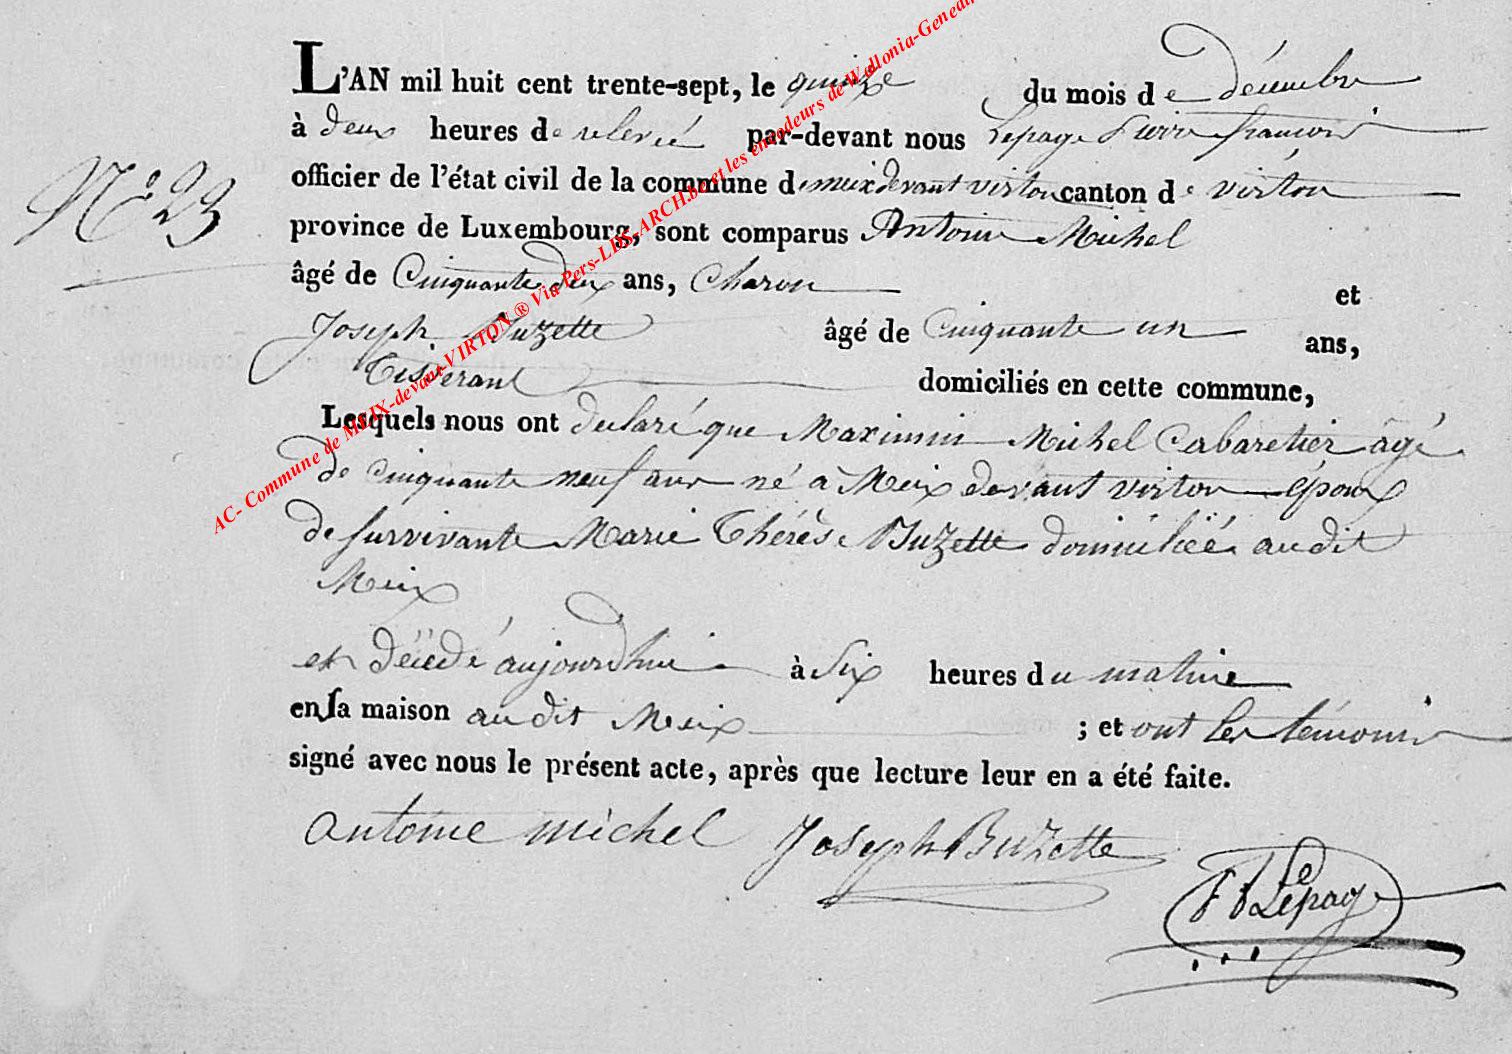 L'AN mil huit cent trente-sept, le quinze du mois de décembre
à deux heures de relevée par-devant nous Lepage Pierre françois
officier de l'état civil de la commune de meix devant virton canton de virton
N° 23
province de Luxembourg, sont comparus Antoine Michel
âgé de Cinquante deux ans, Charon et
Joseph Buzette âgé de Cinquante un ans,
Tisserant domiciliés en cette commune,
Lesquels nous ont declaré que Maximin Michel Cabaretier âgé
de cinquante neuf ans né a Meix devant virton époux
de survivante Marie Thérèse Buzette domiciliée audit
Meix
est décédé aujourdhui à Six heures du matin
en sa maison audit Meix ; et ont les témoins
signé avec nous le présent acte, après que lecture leur en a été faite.
antoine michel Joseph Buzette
Lepage
AC- Commune de MEIX-devant-VIRTON ® Via Pers-LDS-ARCH.be et les encodeurs de Wallonia-Genealo